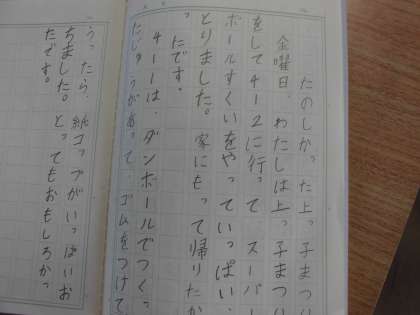 たのしかった上っ子まつり
金曜日、わたしは上っ子まつり
をして4-2に行ってスーパー
ボールすくいをやっていっぱい、
とりました。家にもって帰りたか
ったです。
4-1は、ダンボールでつくっ
たじゅうがあって、ゴムをつけて
うったら、紙コップがいっぱいお
ちました。とってもおもしろかっ
たです。